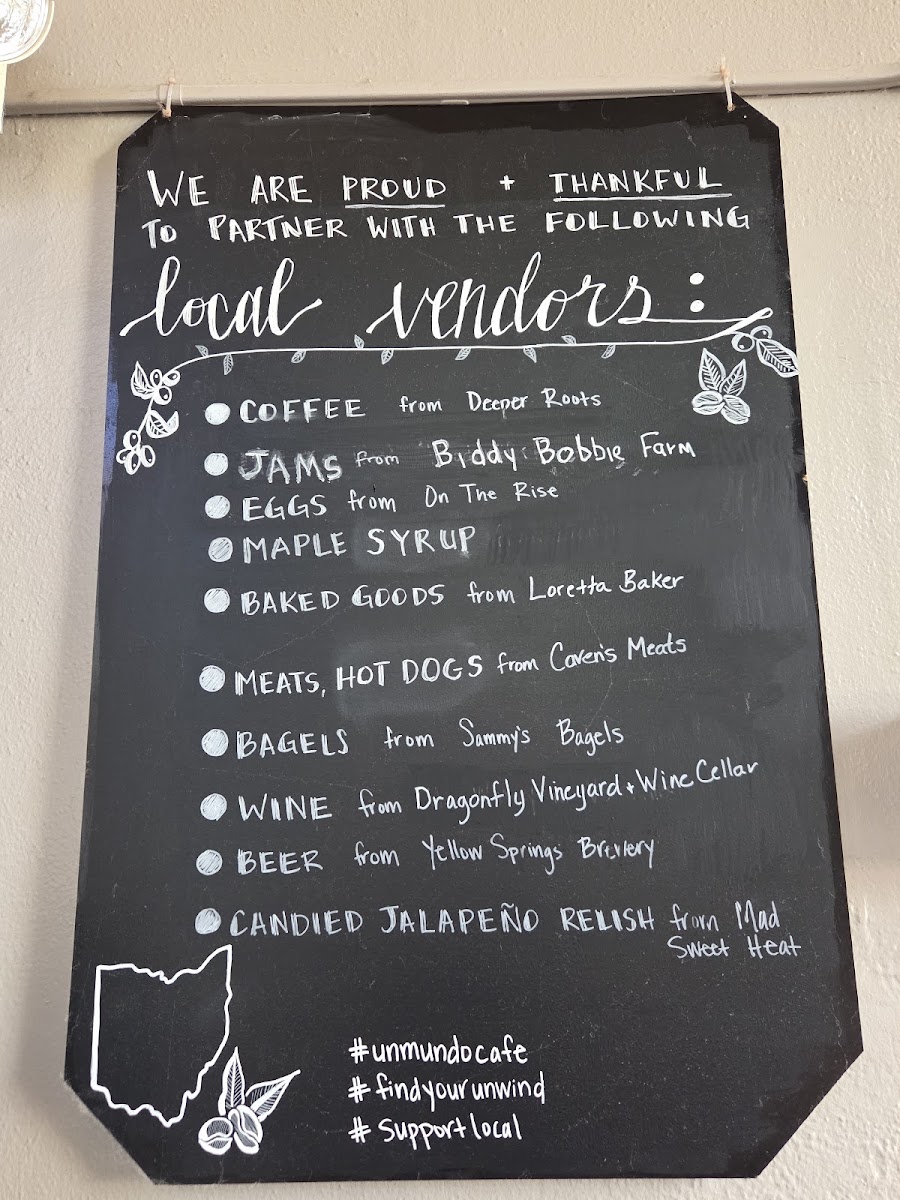 WE ARE PROUD + THANKFUL
TO PARTNER WITH THE FOLLOWING
local vendors:
COFFEE from Deeper Roots
JAMS from Biddy Bobbie Farm
EGGS from On The Rise
MAPLE SYRUP
BAKED GOODS from Loretta Baker
MEATS, HOT DOGS from Caven's Meats
BAGELS from Sammy's Bagels
WINE from Dragonfly Vineyard + Wine Cellar
BEER from Yellow Springs Brewery
CANDIED JALAPEÑO RELISH from Mad
Sweet Heat
#unmundocafe
#findyourunwind
#supportlocal